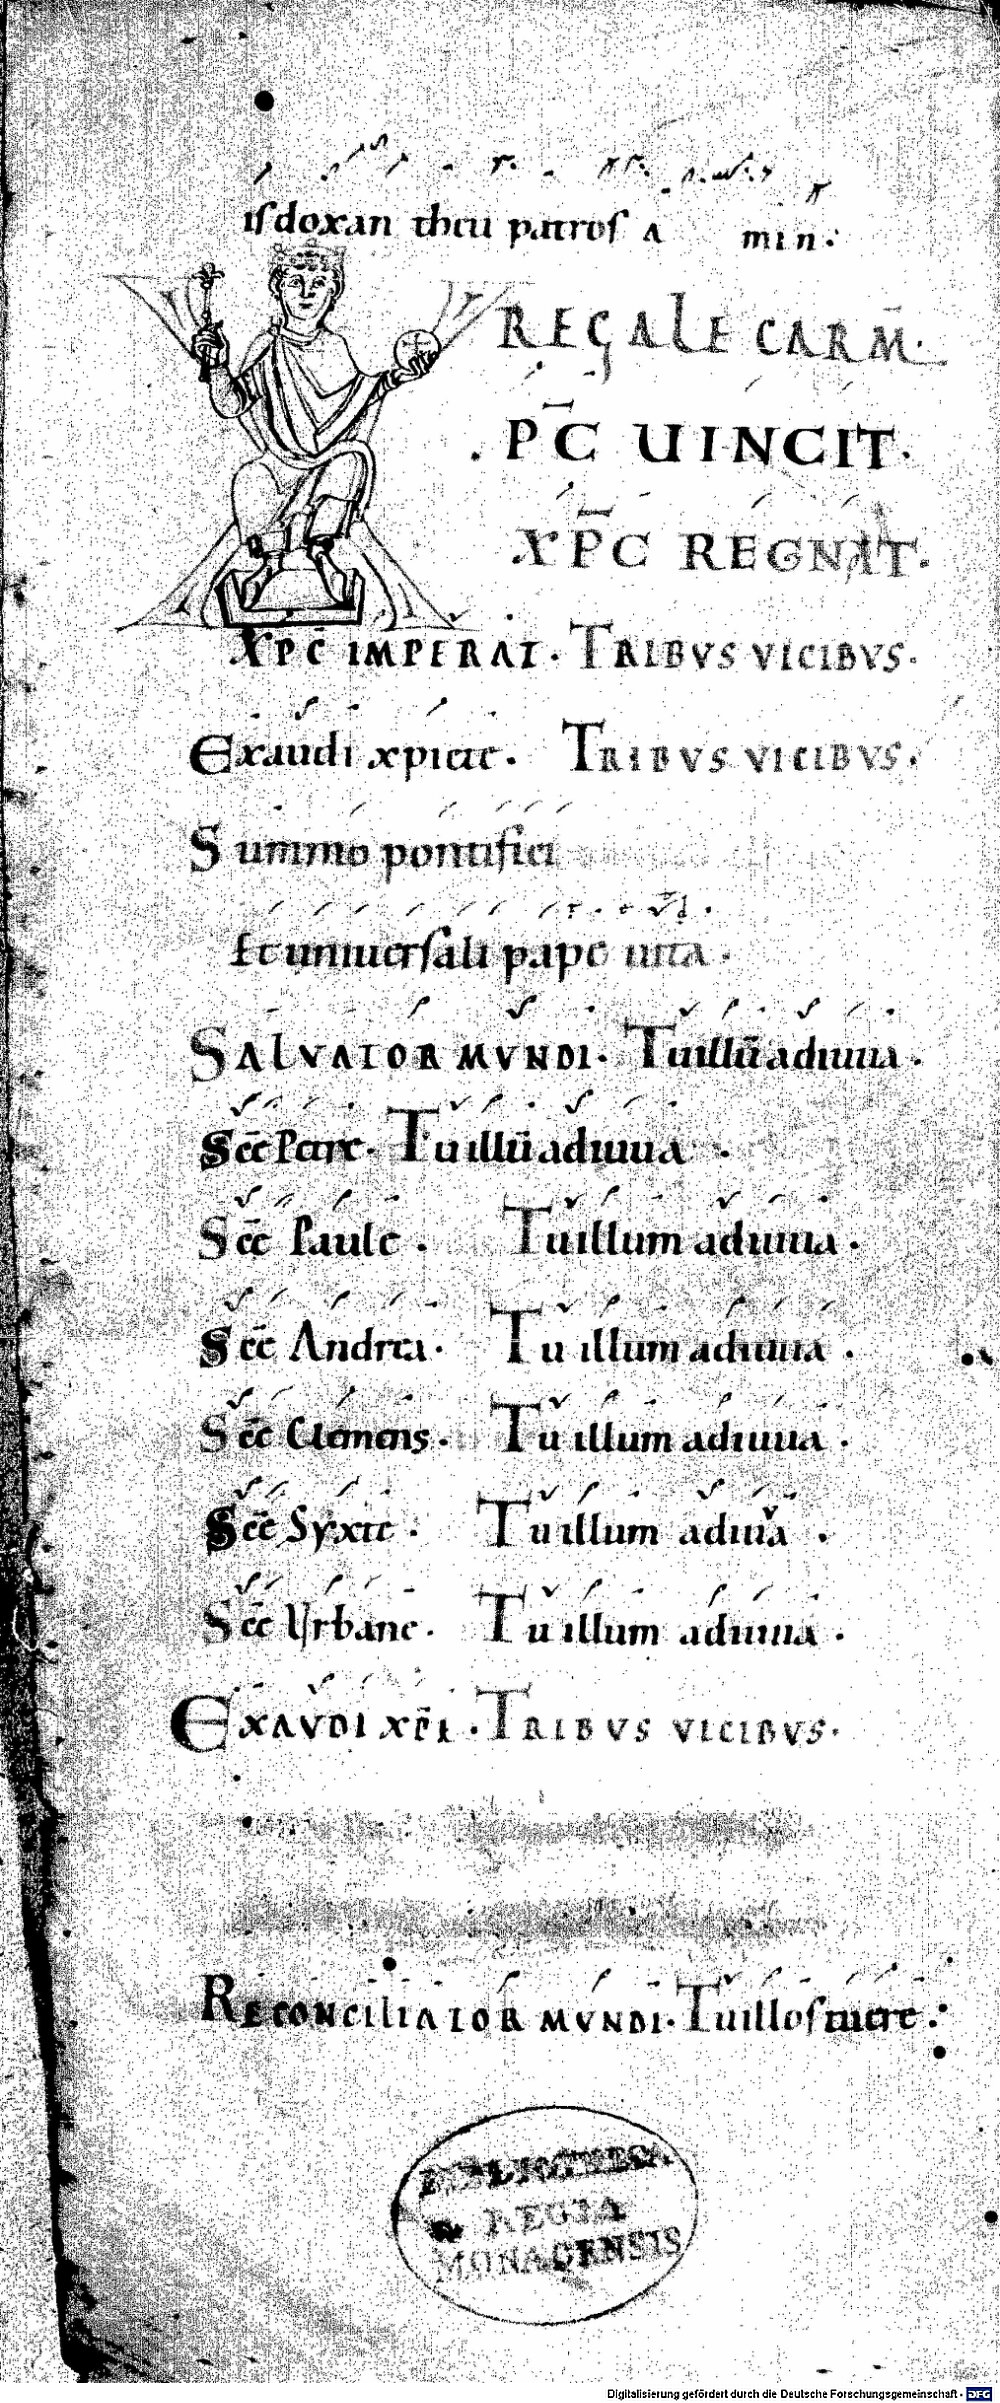 isdoxan theu patros a min:
REGALE CARM̄.
PC̄ UINCIT.
XPC̄ REGNAT.
XPC̄ IMPERAT. TRIBVS VICIBVS.
Exaudi xpiete. TRIBVS VICIBVS.
Summo pontifici
Et uniuersali pape uita.
SALVATOR MVNDI. Tu illū adiuua.
Sc̄e Petre. Tu illū adiuua.
Sc̄e Paule. Tu illum adiuua.
Sc̄e Andrea. Tu illum adiuua.
Sc̄e Clemens. Tu illum adiuua.
Sc̄e Syxte. Tu illum adiuua.
Sc̄e Urbane. Tu illum adiuua.
EXAVDI XP̄E. TRIBVS VICIBVS.
RECONCILIATOR MVNDI. Tu illos tuere.
BIBLIOTHECA
REGIA
MONACENSIS
Digitalisierung gefördert durch die Deutsche Forschungsgemeinschaft - DFG